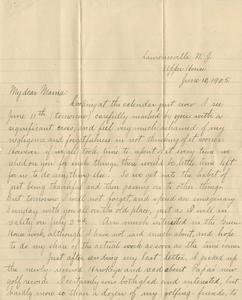 Lawrenceville N.J.
Upper House
June 10, 1905
My dear Mama:
Looking at the calendar just now I see
June 11th (tomorrow) carefully marked by you with a
significant cross, and feel very much ashamed of my
negligence and forgetfulness in not thinking of it sooner.
However if we all took time to repent of every time we
relied on you for such things, there would be little time left
for us to do anything else. So we get into the habit of
just being thankful and then passing on to other things.
But tomorrow I shall not forget, and spend an imaginary
Sunday with you all on the old place, just as I will in
reality on July 2nd. I am much interested in the
work, although I have not said much about, and hope
to do my share of the actual work as soon as the time comes.
Just after sending my last letter, I picked up
the newly arrived Hawkeye and read about Papa's new
golf record. I certainly was both glad and interested, but
hardly more so than a dozen of my golfing friends to